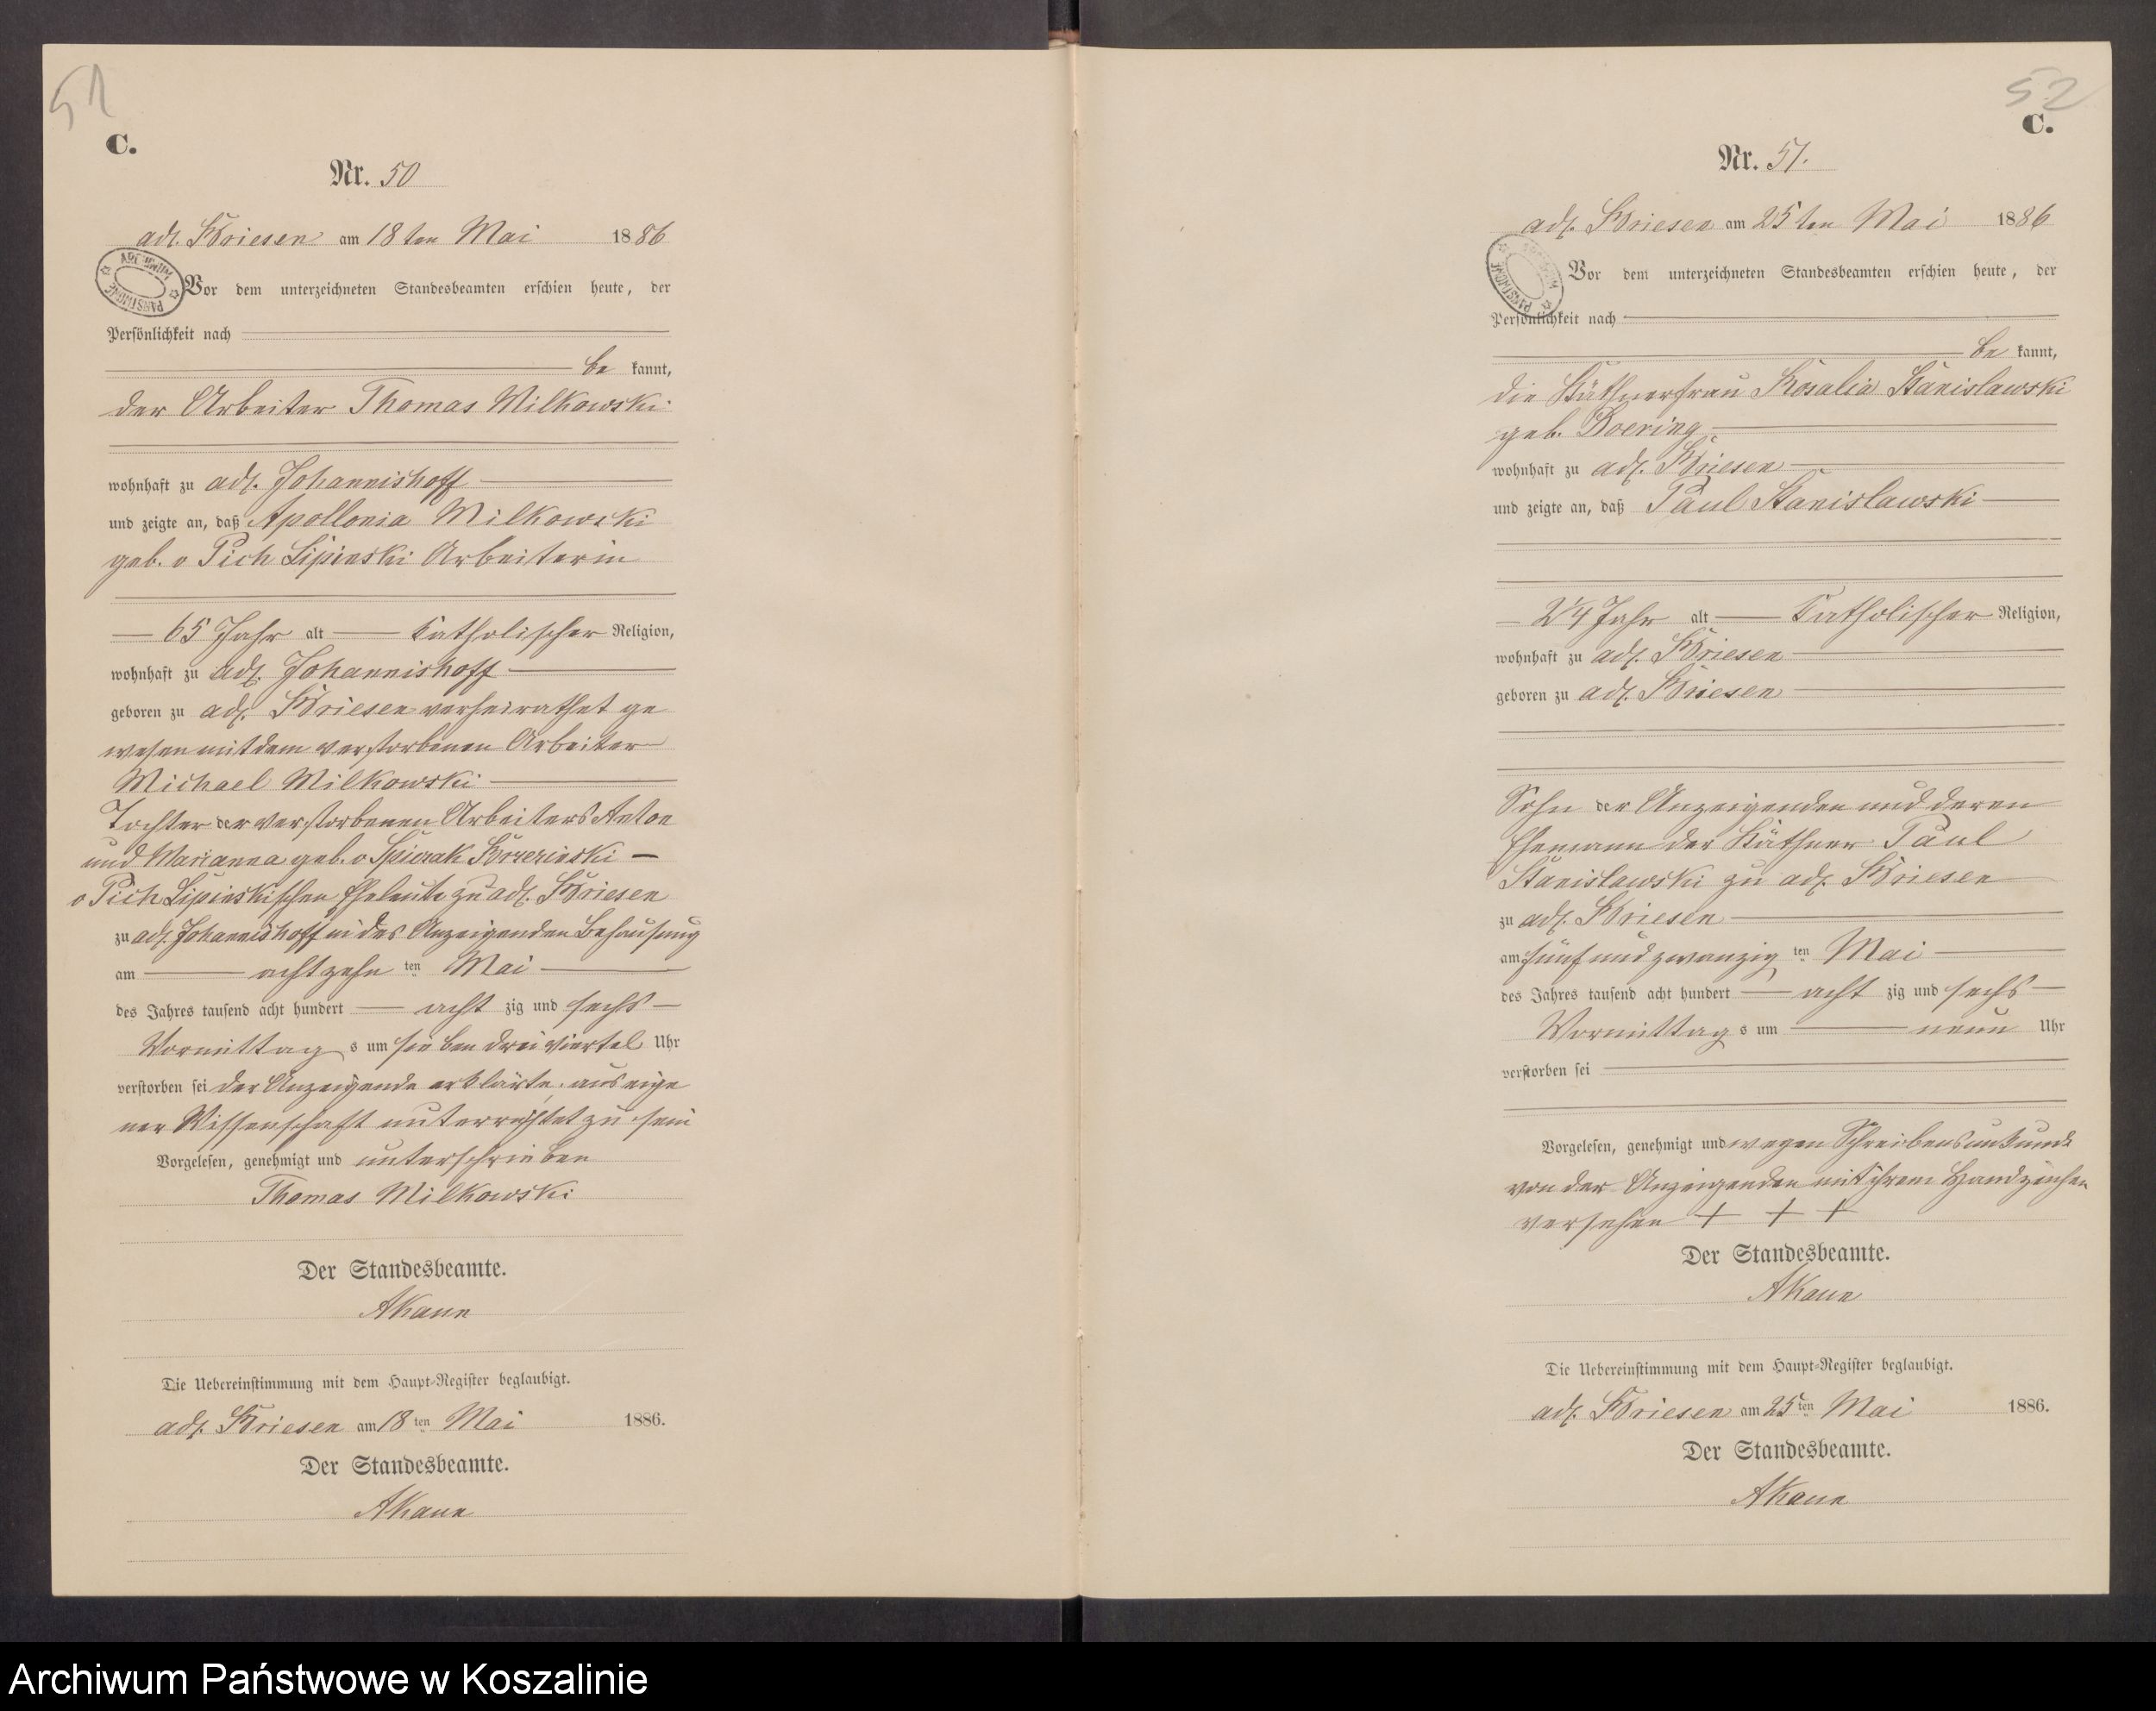 51
C.
Nr. 50
adl. Briesen am 18ten Mai 1886
ARCHIWUM PAŃSTWOWE
Vor dem unterzeichneten Standesbeamten erschien heute, der
Persönlichkeit nach
be kannt,
der Arbeiter Thomas Milkowski
wohnhaft zu adl. Johannishoff
und zeigte an, daß Apollonia Milkowski
geb. v Pich Lipinski Arbeiterin
65 Jahr alt katholischer Religion,
wohnhaft zu adl. Johannishoff
geboren zu adl. Briesen verheirathet ge
wesen mit dem verstorbenen Arbeiter
Michael Milkowski
Tochter der verstorbenen Arbeiters Anton
und Marianna geb. v
v Pich Lipinskischen Eheleute zu adl. Briesen
zu adl. Johannishoff in des Anzeigenden Behausung
am achtzehn ten Mai
des Jahres tausend acht hundert acht zig und sechs
Vormittag s um sieben dreiviertel Uhr
verstorben sei der Anzeigende erklärte, aus eige
ner Wissenschaft unterrichtet zu sein
Vorgelesen, genehmigt und unterschrieben
Thomas Milkowski
Der Standesbeamte.
AKaun
Die Uebereinstimmung mit dem Haupt-Register beglaubigt.
adl. Briesen am 18ten Mai 1886.
Der Standesbeamte.
AKaun
52
C.
Nr. 51.
adl. Briesen am 25ten Mai 1886
ARCHIWUM PAŃSTWOWE
Vor dem unterzeichneten Standesbeamten erschien heute, der
Persönlichkeit nach
be kannt,
die Käthnerfrau Rosalia Stanislawski
geb. Doering
wohnhaft zu adl. Briesen
und zeigte an, daß Paul Stanislawski
24 Jahr alt Katholischer Religion,
wohnhaft zu adl. Briesen
geboren zu adl. Briesen
Sohn der Anzeigenden und deren
Ehemann der Käthner Paul
Stanislawski zu adl. Briesen
zu adl. Briesen
am fünfundzwanzig ten Mai
des Jahres tausend acht hundert acht zig und sechs
Vormittag s um neun Uhr
verstorben sei
Vorgelesen, genehmigt und wegen Schreibensunkunde
von der Anzeigenden mit ihrem Handzeichen
versehen + + +
Der Standesbeamte.
AKaun
Die Uebereinstimmung mit dem Haupt-Register beglaubigt.
adl. Briesen am 25ten Mai 1886.
Der Standesbeamte.
AKaun
Archiwum Państwowe w Koszalinie